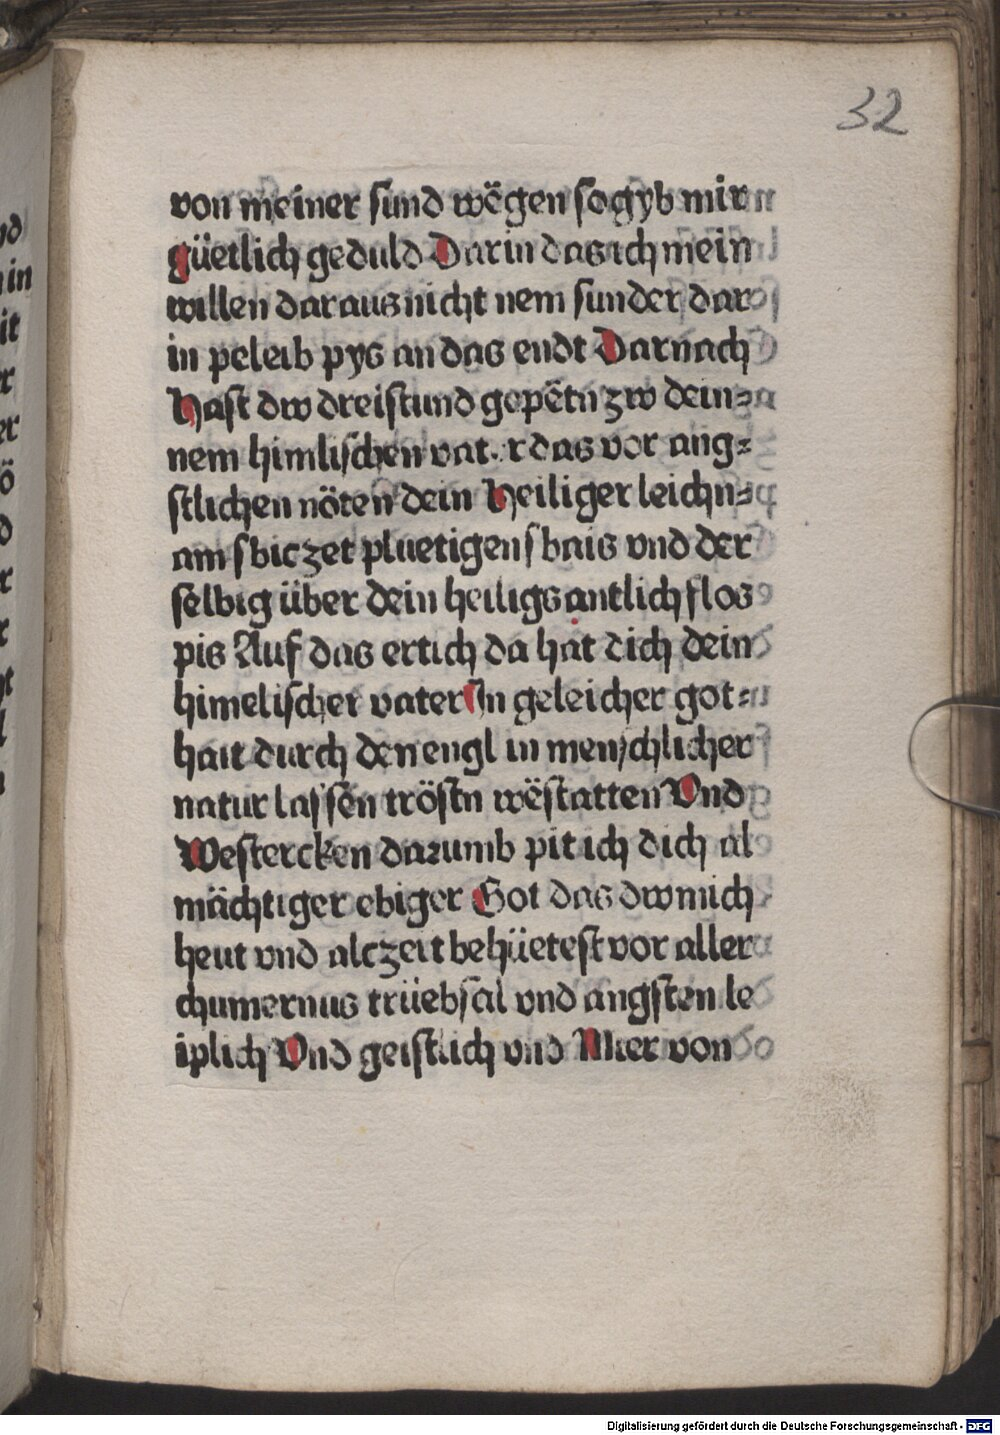 32
von meiner sund wëgen so gyb mir
güetlich geduld Darin das ich mein
willen daraus nicht nem sunder dar
in peleib pys an das endt Darnach
Hast dw dreistund gepëtn zw dein=
nem himlischen vater das vor ang=
stlichen nöten dein Heiliger leichn=
am sbiczet pluetigen sbais vnd der
selbig über dein heiligs antlich flos
pis Auf das ertich da hat dich dein
himelischer vater In geleicher got=
hait durch den engl in menschlicher
natur lassen tröstn wëstatten Vnd
Westercken darumb pit ich dich al
mächtiger ebiger Got das dw mich
heut vnd alczeit behüetest vor aller
chumernus trüebsal vnd angsten le
iplich Vnd geistlich vnd Mier von
Digitalisierung gefördert durch die Deutsche Forschungsgemeinschaft - DFG